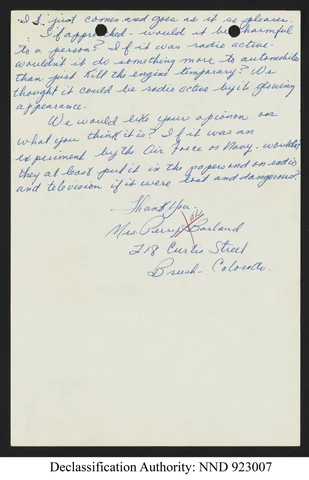 It just comes and goes as it so pleases.
If approached - would it be harmful
to a person? If it was radio active -
wouldn't it do something more to automobiles
than just kill the engine temporary? We
thought it could be radio active by its glowing
appearance.
We would like your opinion on
what you think it is? If it was an
experiment by the Air Force or Navy - wouldn't
they at least put it in the papers and on radio
and television if it were lost and dangerous?
Thank You.
Mrs. Perry Borland
218 Curtis Street
Brush - Colorado.
Declassification Authority: NND 923007